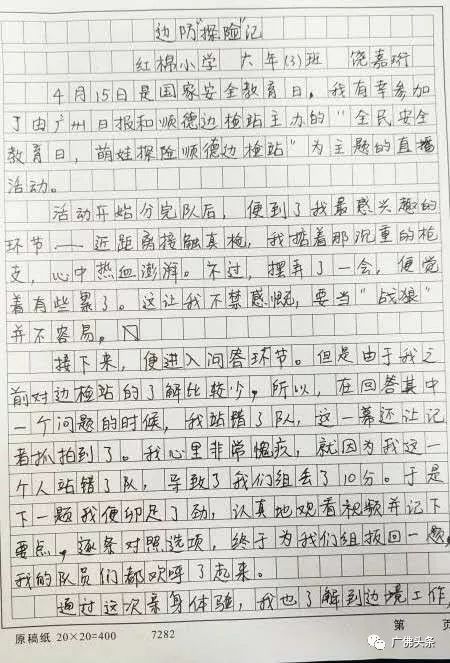 边防"探险"记
红棉小学 六年(3)班 饶嘉珩
4月15日是国家安全教育日。我有幸参加
了由广州日报和顺德边检站主办的"全民安全
教育日,萌娃探险顺德边检站"为主题的直播
活动。
活动开始分完队后,便到了我最感兴趣的
环节——近距离接触真枪,我掂着那沉重的枪
支,心中热血澎湃。不过,摆弄了一会,便觉
着有些累了。这让我不禁感慨,要当"战狼"
并不容易。
接下来,便进入问答环节。但是由于我之
前对边检站的了解比较少,所以,在回答其中
一个问题的时候,我站错了队,这一幕还让记
者抓拍到了。我心里非常愧疚,就因为我这一
个人站错了队,导致了我们组丢了10分。于是
下一题我便卯足了劲,认真地观看视频并记下
要点,逐条对照选项,终于为我们组扳回一题,
我的队员们都欢呼了起来。
通过这次亲身体验,我也了解到边境工作,
原稿纸 20×20=400 7282 第 页
广佛头条